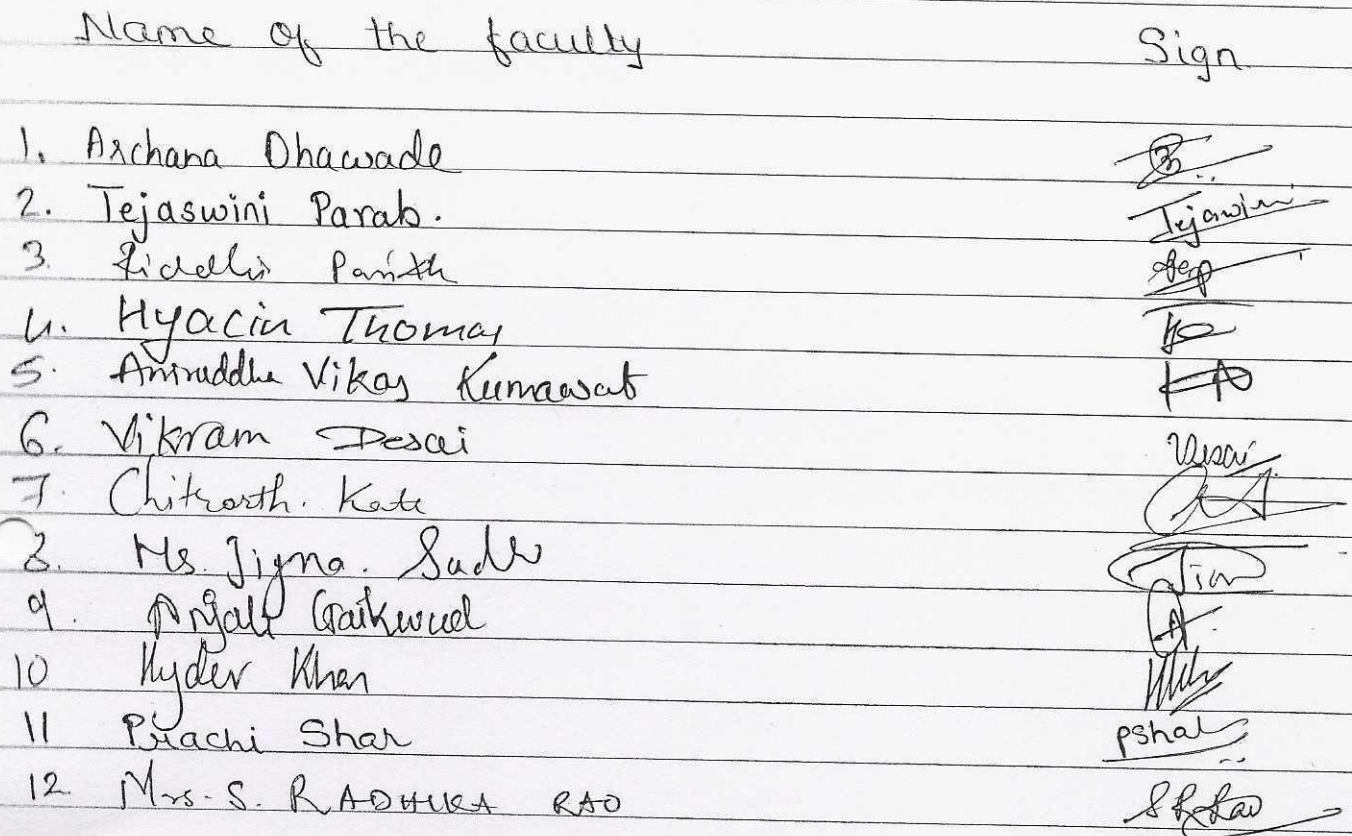 Name of the faculty Sign
1. Archana Dhawade
2. Tejaswini Parab. Tejaswini
3. Riddhi Parikh
4. Hyacin Thomas
5. Aniruddha Vikas Kumawat
6. Vikram Desai VDesai
7. Chitrarth. Kate
8. Ms. Jigna. Sadh
9. Anjali Gaikwad
10 Hyder Khan
11 Prachi Shah pshah
12. Mrs. S. RADHIKA RAO SRRao